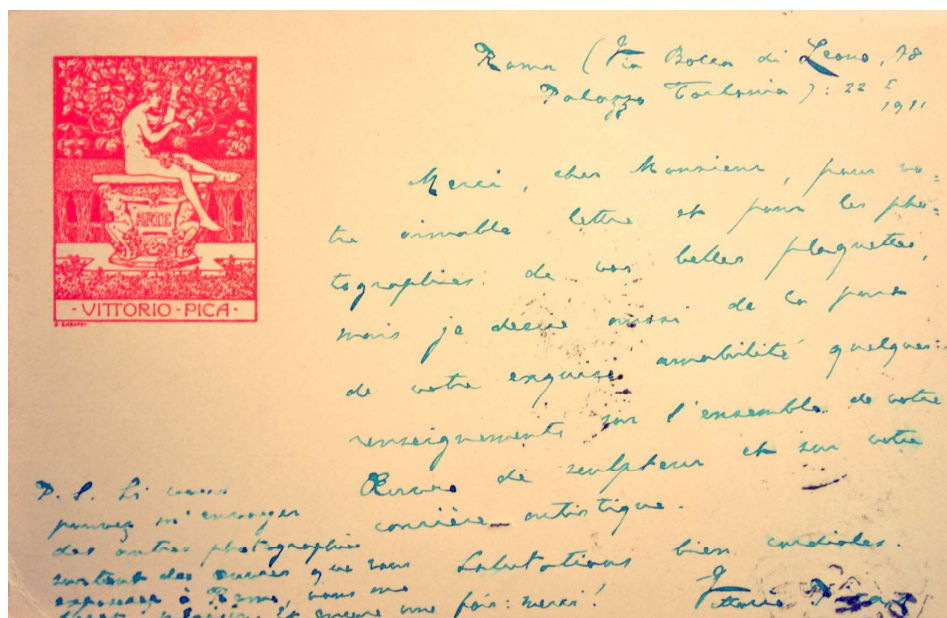 Roma (Via Bocca di Leone, 78
Palazzo Torlonia): 22 I
1911
ARTE
- VITTORIO - PICA -
Merci, cher Monsieur, pour vo-
tre aimable lettre et pour les pho-
tographies de vos belles plaquettes,
mais je désire aussi de la part
de votre exquise amabilité quelques
renseignements sur l'ensemble de votre
Œuvre de sculpteur et sur votre
carrière artistique.
Salutations bien cordiales.
Vittorio Pica
P. S. Si vous
pouvez m'envoyer
des autres photographies
surtout des œuvres que vous
exposerez à Rome, vous me
plaisir. Et encore une fois: merci!